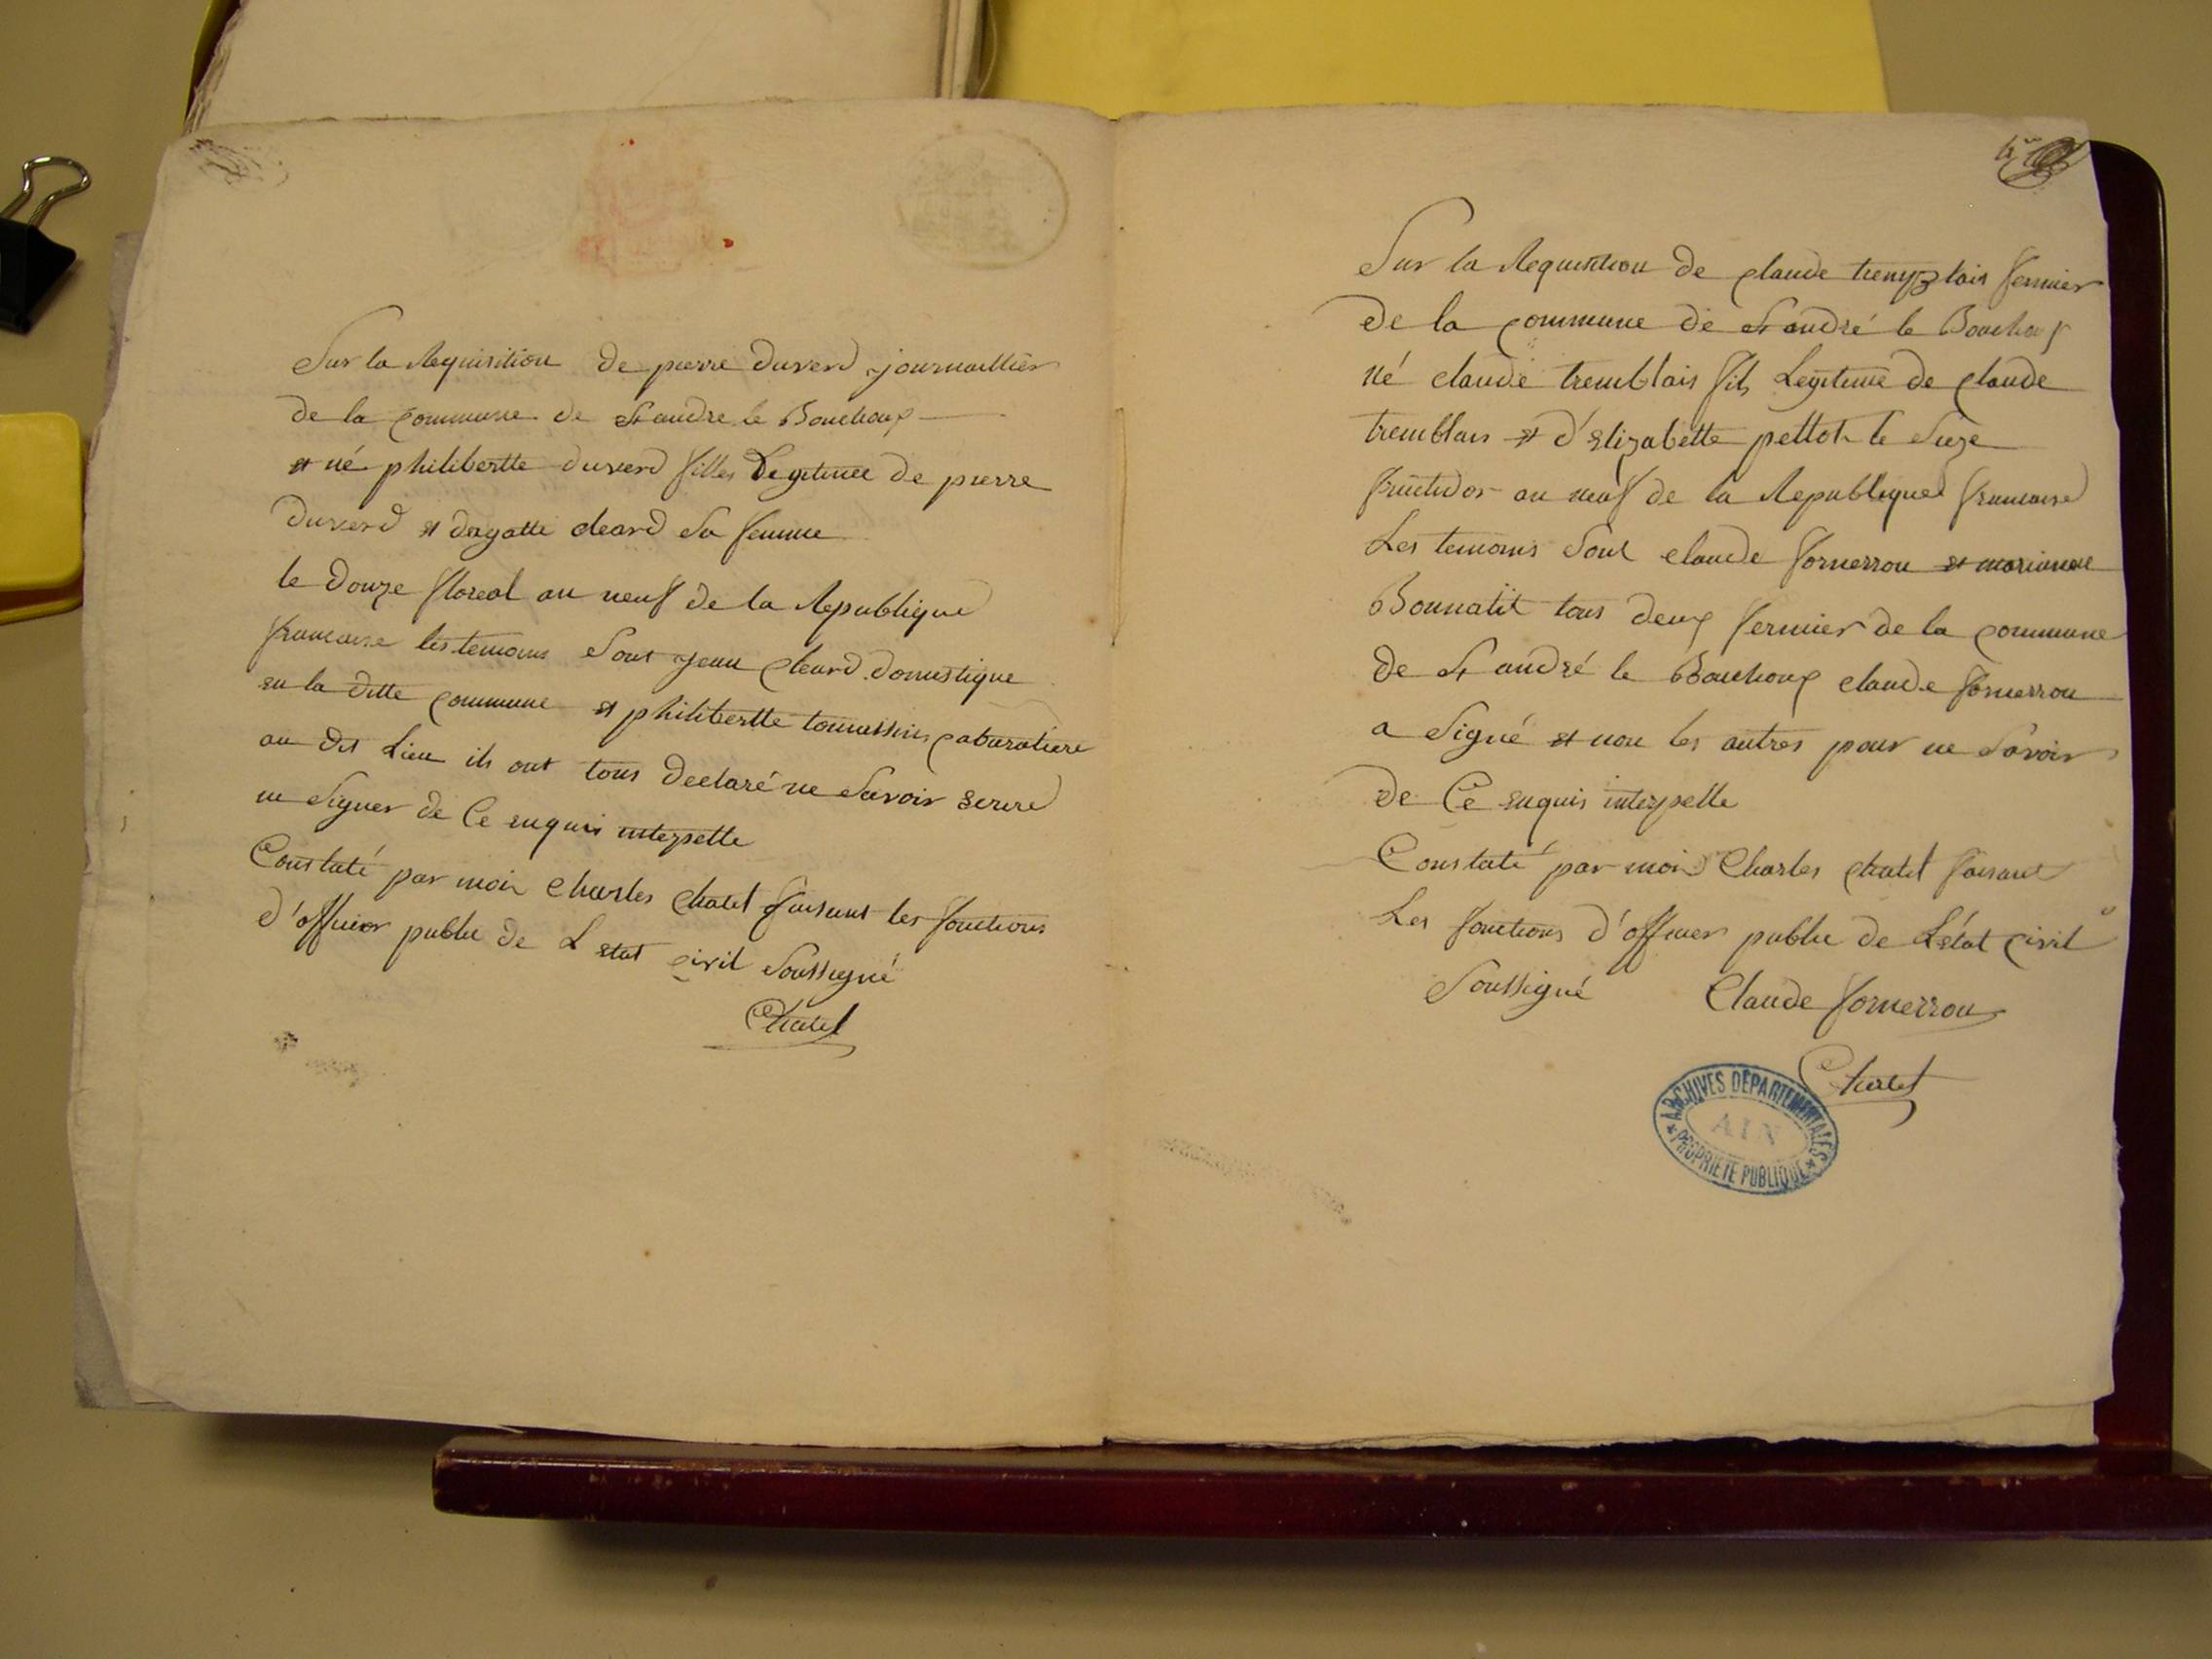 Sur la Requisition de pierre duverd journallier
de la commune de St andre le Bouchoux
et né philibertte duverd filles Legitimee de pierre
duverd et dagatte cleard Sa femme
le douze floreal an neuf de la Republique
francaise les temoins Sont jean cleard domestique
en la ditte commune et philibertte tomassin cabaratiere
au dit Lieu ils ont tous declaré ne Savoir ecrire
ne Signer de Ce enquis interpelle
Constaté par moi Charles Chatel faisant les fonctions
d'officier public de L etat civil Soussigné
Chatel
4e
Sur la Requisition de claude fermier
de la commune de St andré le Bouchoux
né claude tremblais fils Legitime de claude
tremblais et d'elizabette pettot le Seize
fructidor an neuf de la Republique francaise
Les temoins Sont claude fornerron et marianne
Bonnatit tous deux fermier de la commune
de St andré le Bouchoux claude fornerron
a Signé et non les autres pour ne Savoir
de Ce enquis interpelle
Constaté par moi Charles Chatel faisant
Les fonctions d'officier public de L'état civil
Soussigné Claude fornerron
Chatel
ARCHIVES DÉPARTEMENTALES
AIN
PROPRIÉTÉ PUBLIQUE